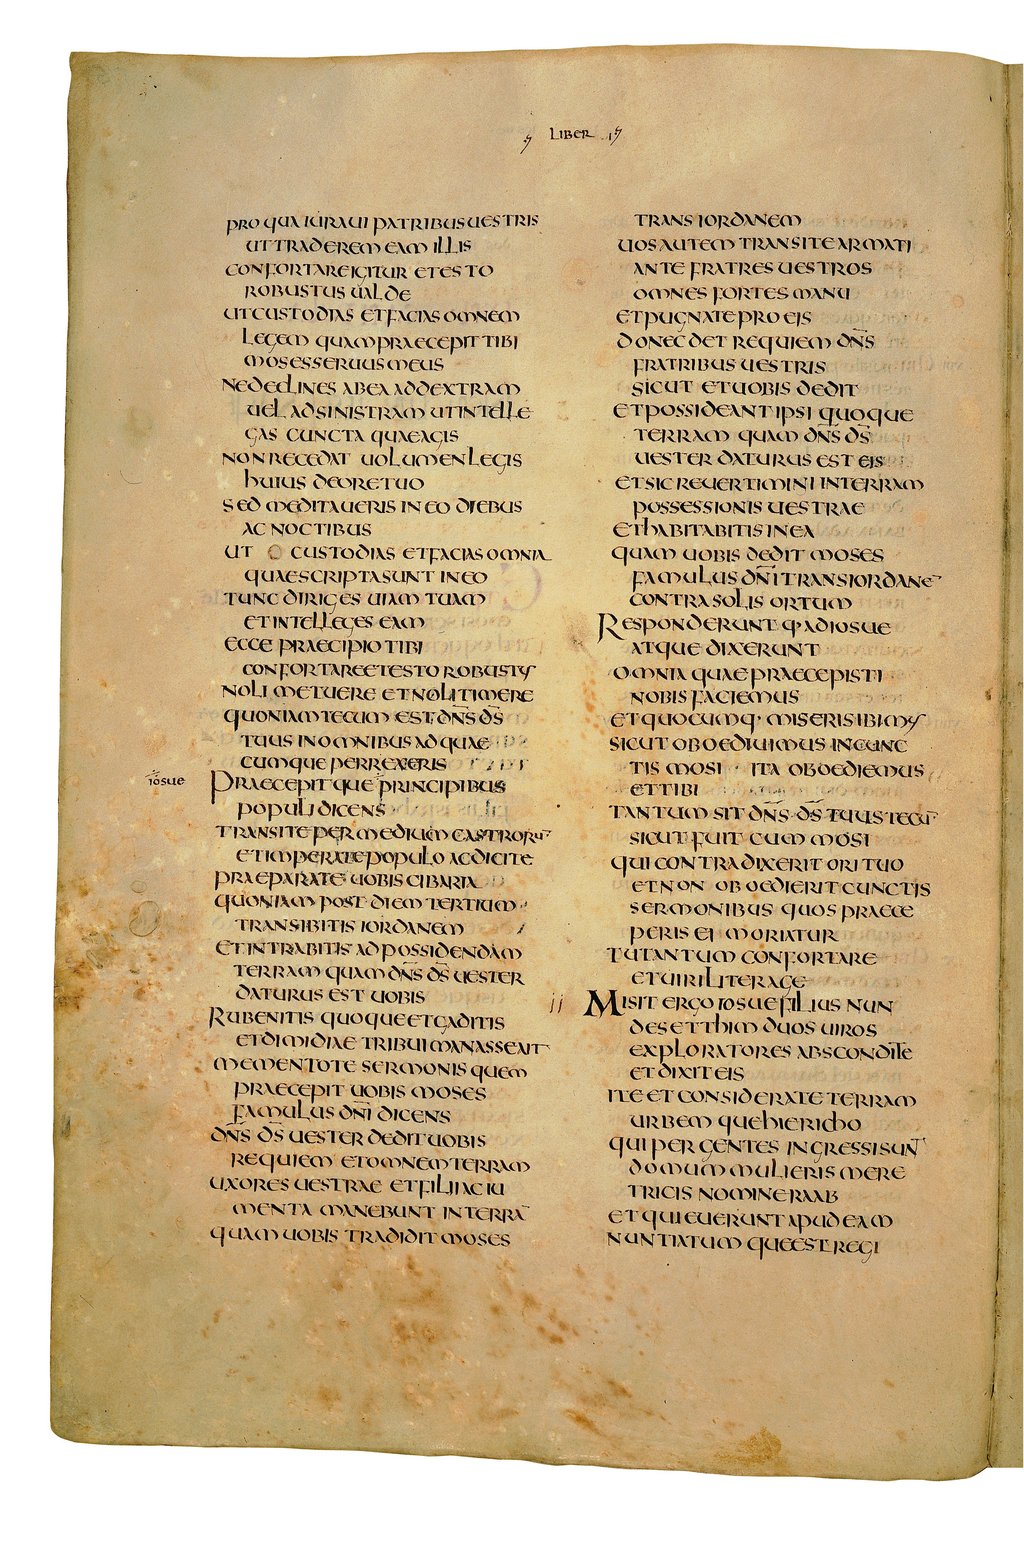 LIBER
PRO QUA IURAUI PATRIBUS UESTRIS
UT TRADEREM EAM ILLIS
CONFORTARE IGITUR ET ESTO
ROBUSTUS UALDE
UT CUSTODIAS ET FACIAS OMNEM
LEGEM QUAM PRAECEPIT TIBI
MOSES SERUUS MEUS
NE DECLINES AB EA AD DEXTRAM
UEL AD SINISTRAM UT INTELLE
GAS CUNCTA QUAE AGIS
NON RECEDAT UOLUMEN LEGIS
HUIUS DE ORE TUO
SED MEDITAUERIS IN EO DIEBUS
AC NOCTIBUS
UT CUSTODIAS ET FACIAS OMNIA
QUAE SCRIPTA SUNT IN EO
TUNC DIRIGES UIAM TUAM
ET INTELLEGES EAM
ECCE PRAECIPIO TIBI
CONFORTARE ET ESTO ROBUSTUS
NOLI METUERE ET NOLI TIMERE
QUONIAM TECUM EST DN̄S D̄S
TUUS IN OMNIBUS AD QUAE
CUMQUE PERREXERIS
IOSUE
PRAECEPITQUE PRINCIPIBUS
POPULI DICENS
TRANSITE PER MEDIUM CASTRORU̅
ET IMPERATE POPULO AC DICITE
PRAEPARATE UOBIS CIBARIA
QUONIAM POST DIEM TERTIUM
TRANSIBITIS IORDANEM
ET INTRABITIS AD POSSIDENDAM
TERRAM QUAM DN̄S D̄S UESTER
DATURUS EST UOBIS
RUBENITIS QUOQUE ET GADITIS
ET DIMIDIAE TRIBUI MANASSE AIT
MEMENTOTE SERMONIS QUEM
PRAECEPIT UOBIS MOSES
FAMULUS DN̄I DICENS
DN̄S D̄S UESTER DEDIT UOBIS
REQUIEM ET OMNEM TERRAM
UXORES UESTRAE ET FILII AC IU
MENTA MANEBUNT IN TERRA
QUAM UOBIS TRADIDIT MOSES
TRANS IORDANEM
UOS AUTEM TRANSITE ARMATI
ANTE FRATRES UESTROS
OMNES FORTES MANU
ET PUGNATE PRO EIS
DONEC DET REQUIEM DN̄S
FRATRIBUS UESTRIS
SICUT ET UOBIS DEDIT
ET POSSIDEANT IPSI QUOQUE
TERRAM QUAM DN̄S D̄S
UESTER DATURUS EST EIS
ET SIC REUERTIMINI IN TERRAM
POSSESSIONIS UESTRAE
ET HABITABITIS IN EA
QUAM UOBIS DEDIT MOSES
FAMULUS DN̄I TRANS IORDANE̅
CONTRA SOLIS ORTUM
RESPONDERUNTQ· AD IOSUE
ATQUE DIXERUNT
OMNIA QUAE PRAECEPISTI
NOBIS FACIEMUS
ET QUOCUMQ· MISERIS IBIMUS
SICUT OBOEDIUIMUS IN CUNC
TIS MOSI ITA OBOEDIEMUS
ET TIBI
TANTUM SIT DN̄S D̄S TUUS TECU̅
SICUT FUIT CUM MOSI
QUI CONTRADIXERIT ORI TUO
ET NON OBOEDIERIT CUNCTIS
SERMONIBUS QUOS PRAECE
PERIS EI MORIATUR
TU TANTUM CONFORTARE
ET UIRILITER AGE
II MISIT ERGO IOSUE FILIUS NUN
DE SETTHIM DUOS UIROS
EXPLORATORES ABSCONDITE
ET DIXIT EIS
ITE ET CONSIDERATE TERRAM
URBEMQUE HIERICHO
QUI PERGENTES INGRESSI SUNT
DOMUM MULIERIS MERE
TRICIS NOMINE RAAB
ET QUIEUERUNT APUD EAM
NUNTIATUMQUE EST REGI